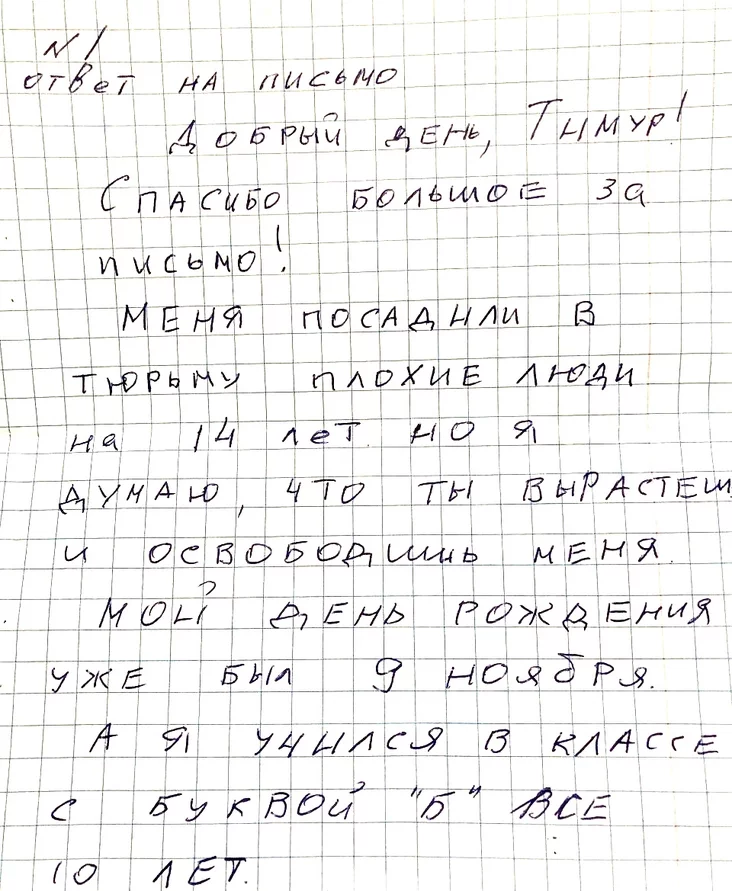 N 1
ответ на письмо
Добрый день, Тимур!
Спасибо большое за
письмо!
Меня посадили в
тюрьму плохие люди
на 14 лет. но я
думаю, что ты вырастеш
и освободишь меня.
Мой день рождения
уже был 9 ноября.
А я учился в классе
с буквой "Б" все
10 лет.